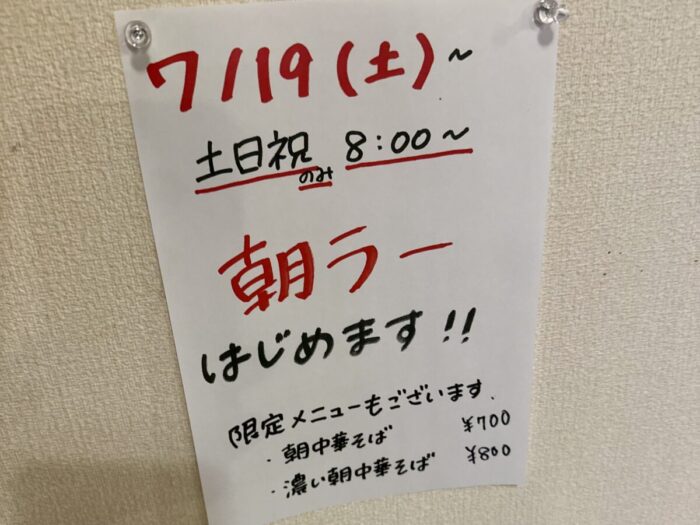 7/19(土)~
土日祝のみ 8:00~
朝ラー
はじめます!!
限定メニューもございます.
・朝中華そば ¥700
・濃い朝中華そば ¥800